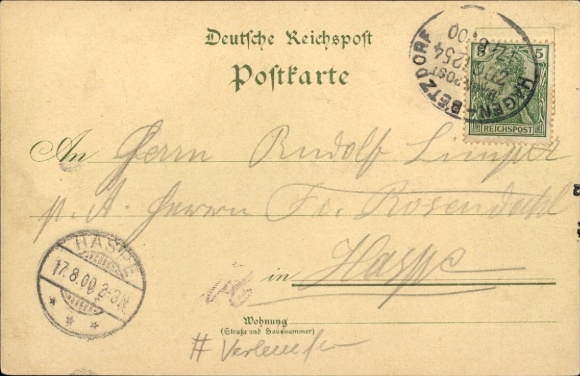 Deutsche Reichspost
Postkarte
HAGEN - BETZDORF
BAHNPOST
ZUG 1254
17.8
00
5 5
REICHSPOST
An Herrn Rudolf Limper
p. A. Herrn Fr. Rosendahl
in Haspe
HASPE
17.8.00. 2-3N.
Wohnung
(Straße und Hausnummer)
#